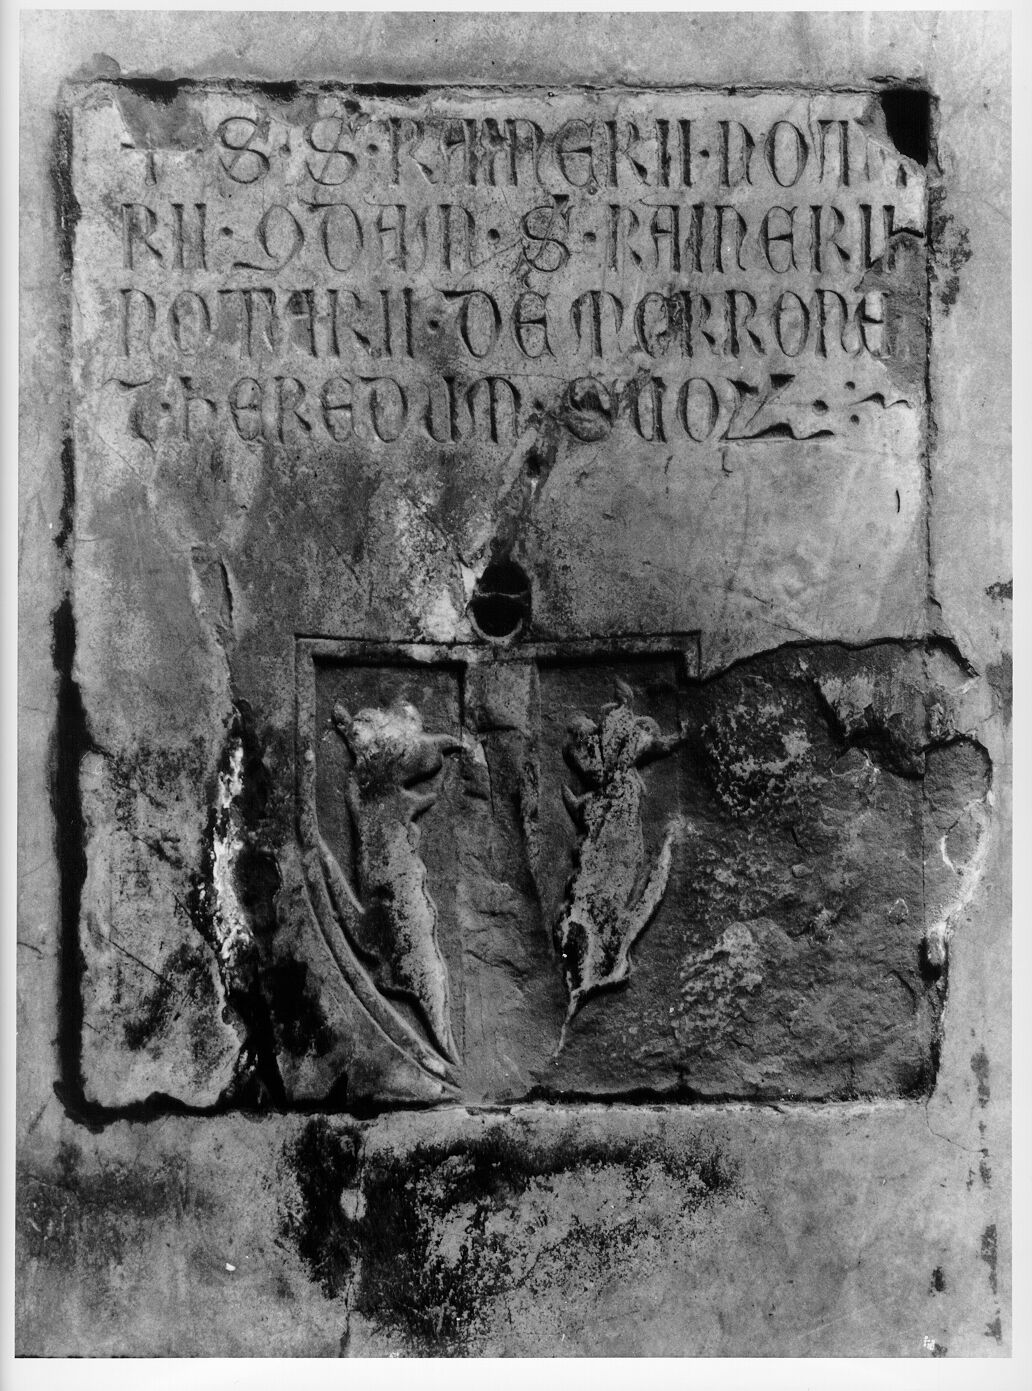 + S · S · RAINERII · NOTA
RII · ꝯDAM · S · RAINERII
NOTARII · DE MORRONE
⁊ · HEREDUM · SUOꝜ :~